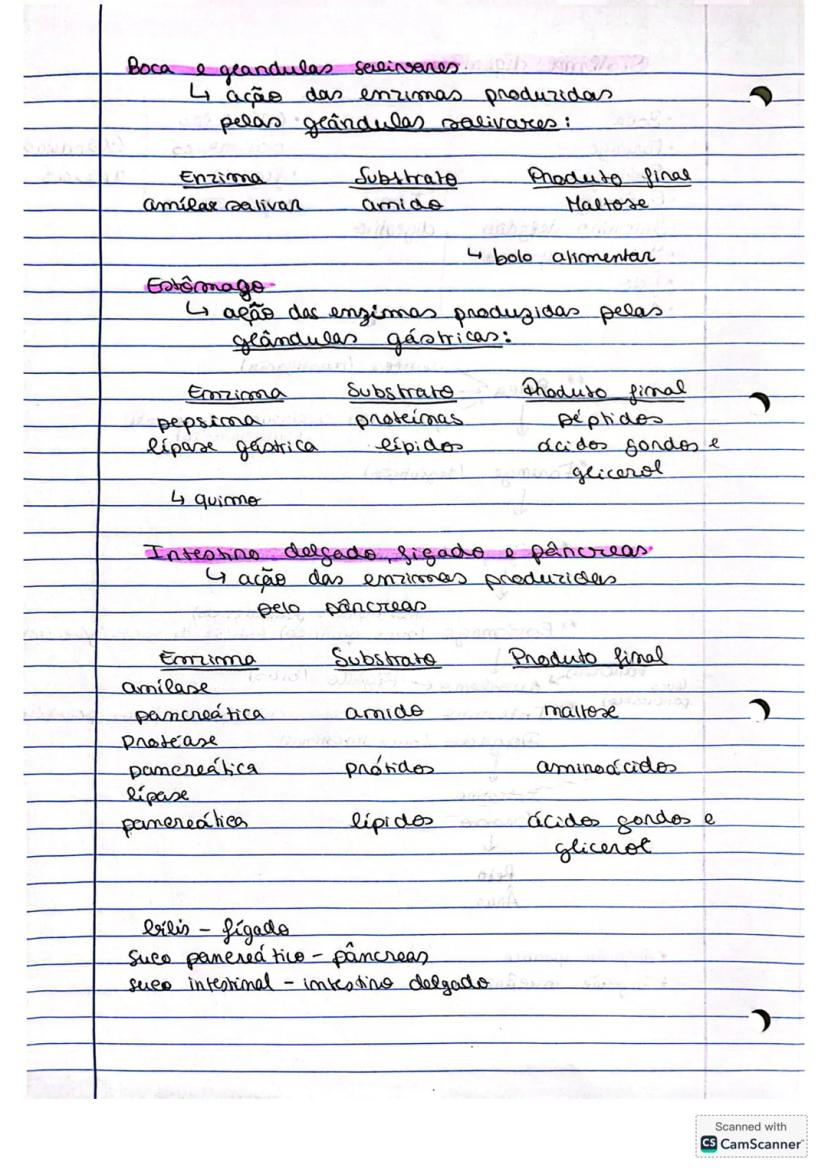 Boca e glandulas salivares
↳ ação das enzimas produzidas
pelas glândulas salivares:
Enzima Substrato Produto final
amílase salivar amido Maltose
↳ bolo alimentar
Estômago
↳ ação das enzimas produzidas pelas
glândulas gástricas:
Enzima Substrato Produto final
pepsina proteínas péptidos
lípase gástrica lípidos ácidos gordos e
glicerol
↳ quimo
Intestino delgado, fígado e pâncreas
↳ ação das enzimas produzidas
pelo pâncreas
Enzima Substrato Produto final
amílase
pancreática amido maltose
Protéase
pancreática prótidos aminoácidos
lípase
pancreática lípidos ácidos gordos e
glicerol
bílis - fígado
Suco pancreático - pâncreas
suco intestinal - intestino delgado
Scanned with
CS CamScanner